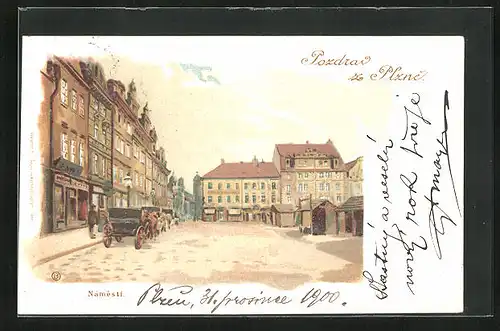 Pozdrav
ze Plzně.
Náměstí.
Plzeň, 31. prosince 1900.
Šťastný a veselý
nový rok přeje